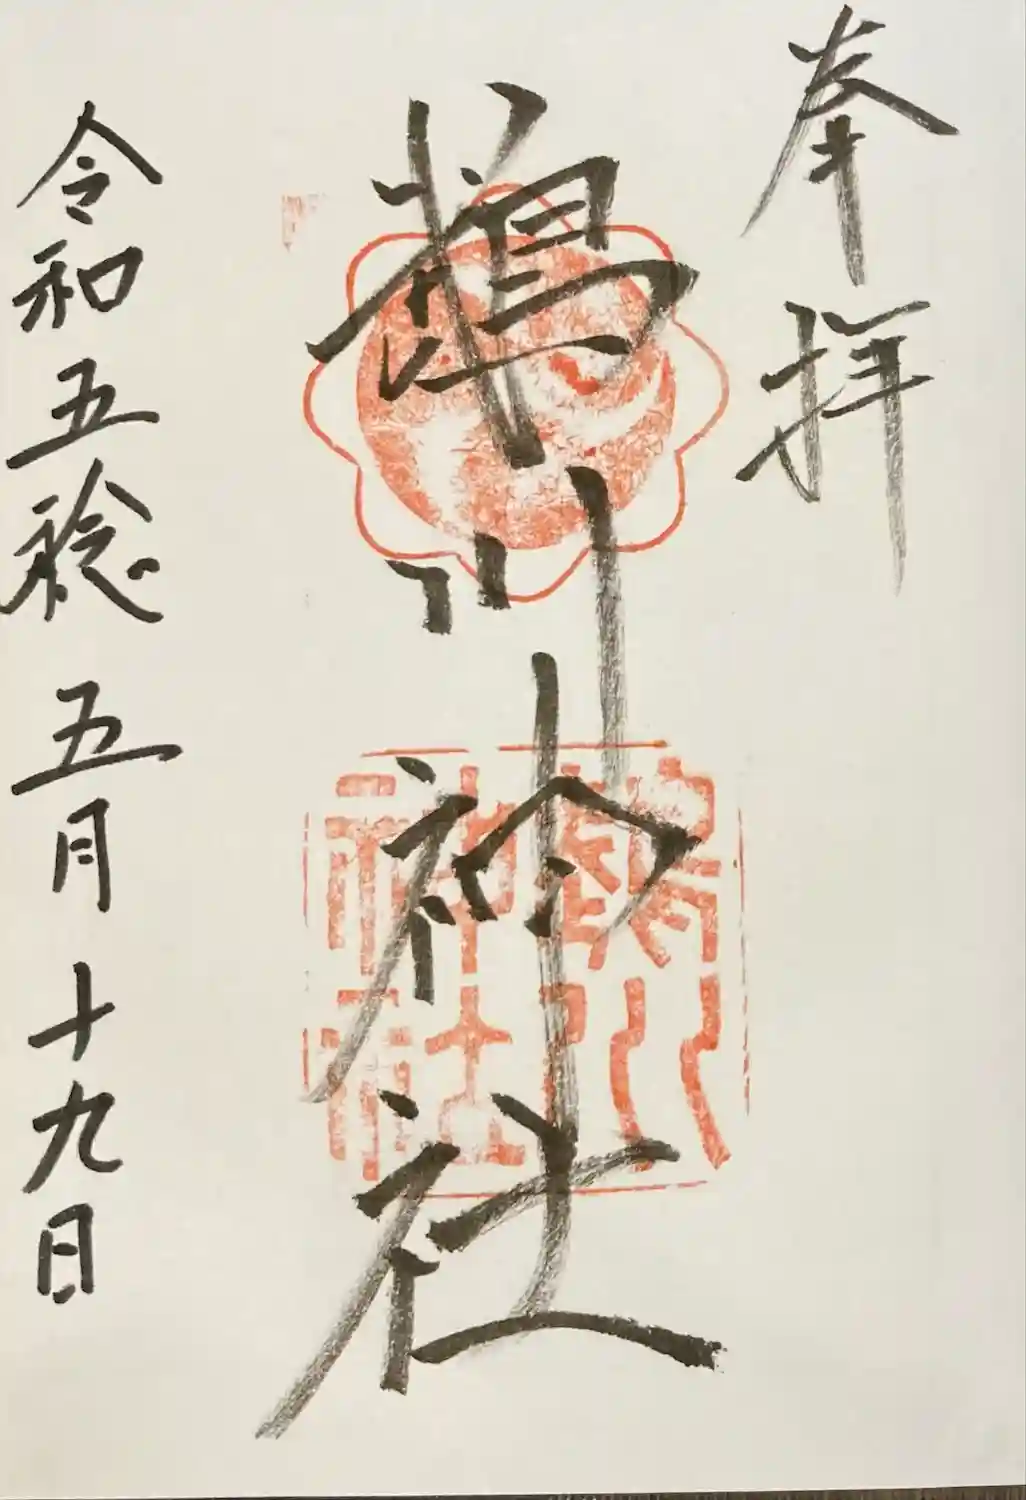 奉拝
鶴川神社
鶴川
神社
令和五稔五月十九日